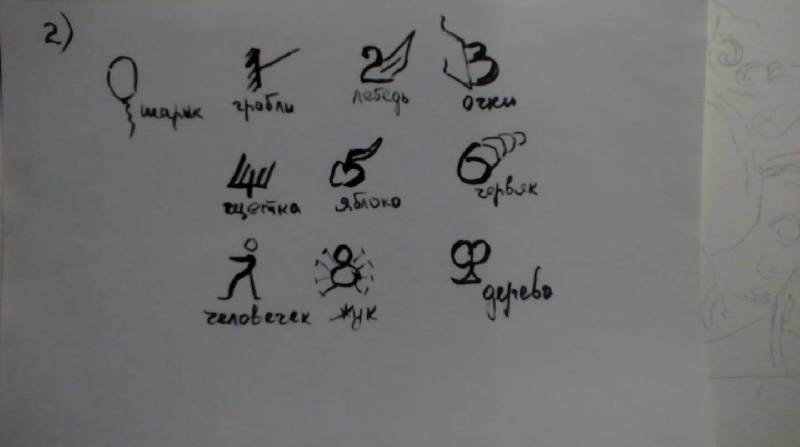 2)
шарик грабли лебедь очки
щетка яблоко червяк
человечек жук дерево